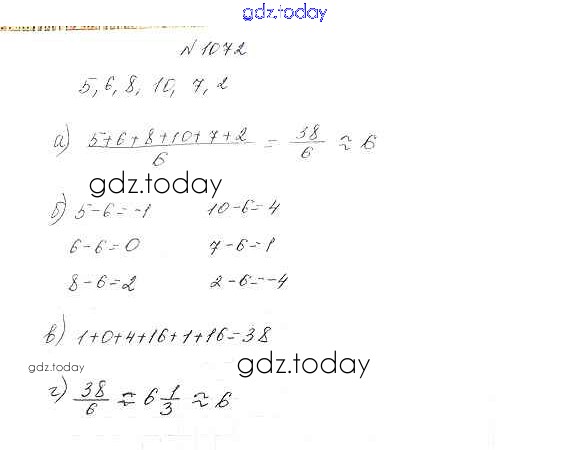 gdz.today
№1072
5, 6, 8, 10, 7, 2
а) (5+6+8+10+7+2)/6 = 38/6 ≈ 6
gdz.today
б) 5-6=-1 10-6=4
6-6=0 7-6=1
8-6=2 2-6=-4
в) 1+0+4+16+1+16=38
gdz.today
gdz.today
г) 38/6 ≈ 6 1/3 ≈ 6